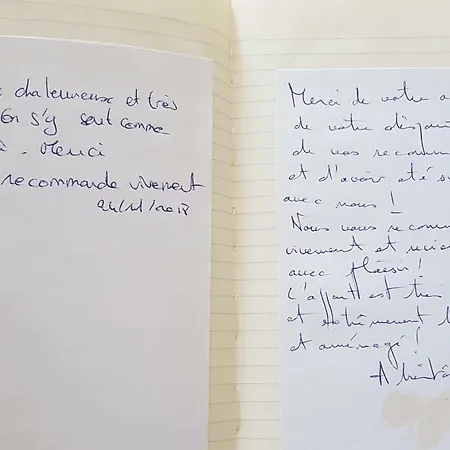 chaleureux et très
En s'y sent comme
Merci
recommande vivement
Merci de votre a
de votre
de vos recomm
et d'avoir été s
avec nous !
Nous vous recomm
vivement et
avec plaisir !
L'appart est trè
et
et aménagé !
A bientô